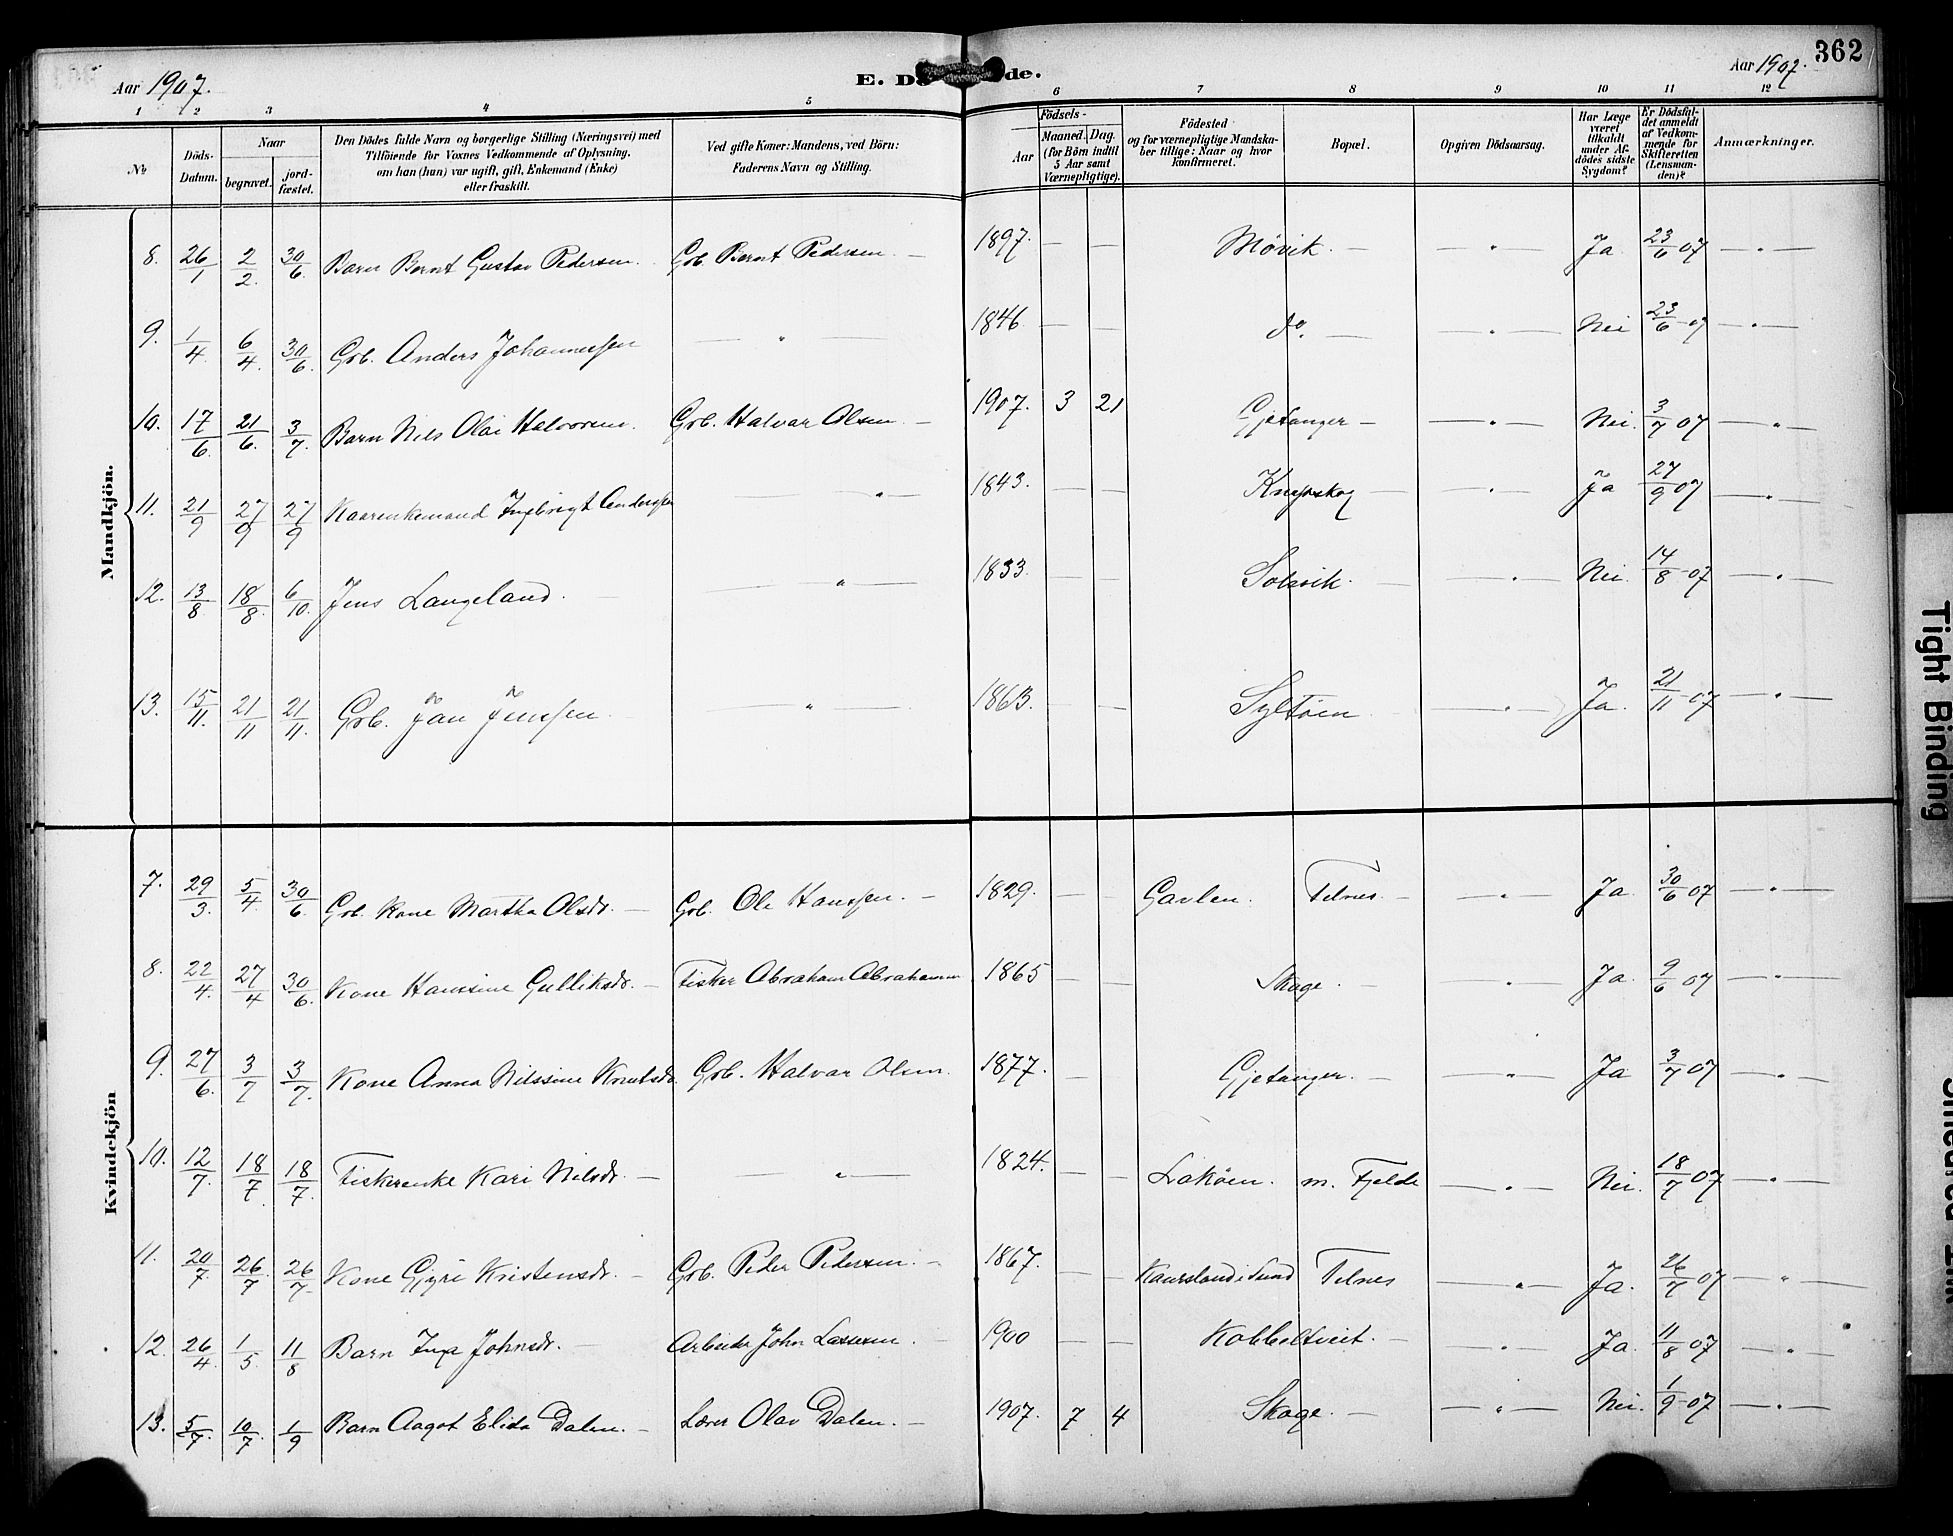 Aar 1907. E. Dö de. Aar 1907. 362
1 2 3 4 5 6 7 8 9 10 11 12
No
Döds-Datum.
Naar
begravet. jord-fæstet.
Den Dödes fulde Navn og borgerlige Stilling (Næringsvei) med
Tilföiende for Voxnes Vedkommende af Oplysning,
om han (hun) var ugift, gift, Enkemand (Enke)
eller fraskilt.
Ved gifte Koner: Mandens, ved Börn:
Faderens Navn og Stilling.
Födsels-
Aar Maaned. Dag.
(for Börn indtil
5 Aar samt
Værnepligtige).
Födested
og for værnepligtige Mandska-
ber tillige: Naar og hvor
konfirmeret.
Bopæl.
Opgiven Dödsaarsag.
Har Læge
været
tilkaldt
under Af-
dödes sidste
Sygdom?
Er Dödsfal-
det anmeldt
af Vedkom-
mende for
Skifteretten
(Lensman-
den)?
Anmærkninger.
Mandkjön.
8. 26/1 2/2. 30/6. Barn Bernt Gustav Pedersen. Grb. Bernt Pedersen. — 1897. — — Møvik. — — " — Ja 23/6 07 — " —
9. 1/4. 6/4. 30/6. Grb. Anders Johannessen — " — 1846 — — do. — — " — Nei 23/6 07 — " —
10. 17/6. 21/6. 3/7. Barn Nils Olai Halvorsen. Grb. Halvar Olsen. — 1907. 3 21 Gjetanger — — " — Nei. 3/7 07 — " —
11. 21/9 27/9 27/9 Kaarenkemand Ingebrigt Anderssen — " — 1843. — — Knapskog — — " — Ja 27/9 07 — " —
12. 13/8 18/8. 6/10. Jens Langeland. — — " — 1833. — — Solsvik. — — " — Nei. 14/8 07 — " —
13. 15/11. 21/11 21/11. Grb. Jan Jenssen. — " — 1863. — Syltøen — " — Ja. 21/11 07 — " —
Kvindekjön
7. 29/3. 5/4. 30/6. Grb. Kone Martha Olsdr. — Grb. Ole Hanssen. — 1829. — — Gavlen. Telnes. — — " — Ja 30/6 07 — " —
8. 22/4. 27/4 30/6. Kone Hanssine Gulliksdr. — Fisker Abraham Abrahamsen 1865 — — Skage. — — " — Ja. 9/6 07 — " —
9. 27/6. 3/7 3/7. Kone Anna Nilssine Knutsdr. Grb. Halvar Olsen. 1877. — — Gjetanger. — — " — Ja 3/7 07 — " —
10. 12/7. 18/7 18/7. Fiskerenke Kari Nilsdr. — — " — 1824. — — Lokøen. m. Fjelde — " — Nei. 18/7 07 — " —
11. 20/7. 26/7 26/7. Kone Gjyri Kristensdr. — Grb. Peder Pedersen. — 1867. — — Kaursland i Sund Telnes — " — Ja. 26/7 07 — " —
12. 26/4. 1/5. 11/8 Barn Inga Johnsdr. — Arbeider John Lassesen. — 1900 — — Kobbeltveit. — — " — Ja. 11/8 07 — " —
13. 5/7. 10/7. 1/9 Barn Aagot Elida Dalen. — Lærer Olav Dalen. — 1907. 7 4 Skage. — — " — Nei. 1/9 07 — " —
Tight Binding